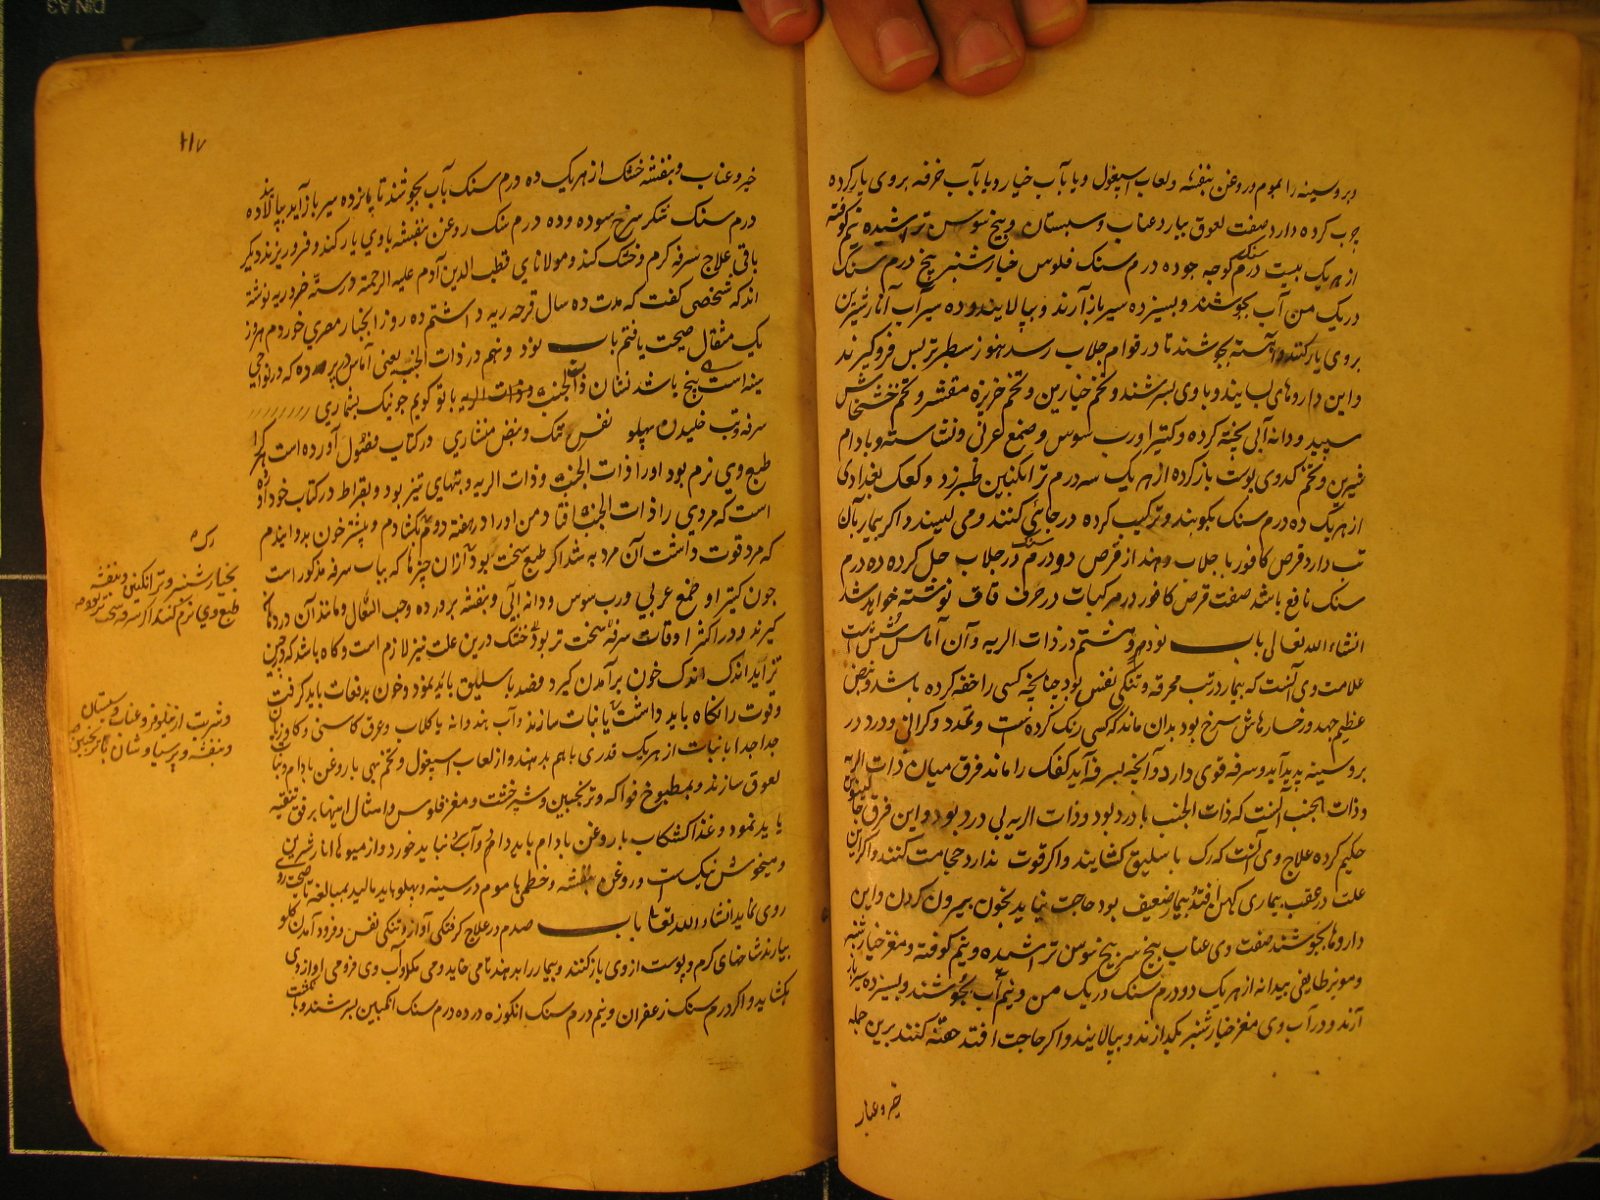 و بر و سینه را بموم در و غن بنفشه و لعاب اسپغول و یا بآب خیار و یا بآب خرفه بر وی یار کرده
چرب کرده دارد صفت لعوق بیارد عناب و سبستان و بیخ سوس تراشیده نیم کوفته
از هر یک بیست درم سنک کوجه جو ده درم سنک فلوس خیار شنبر پنج درم سنک
در یک من آب بجوشند و بسیزده سیر باز آرند و بپالایند و ده سیر آب انار شیرین
بر وی یار کنند و آهسته بجوشند تا در قوام جلاب رسد هنوز سطبرتر بس فرو گیرند
و این داروهای بسایند و با وی بسرشند و تخم خیارین و تخم خربزه مقشر و تخم خشخاش
سپید و دانه آبی پخته کرده و کتیرا و رب سوس و صمغ عربی و نشاسته و بادام
شیرین و تخم کدوی پوست باز کرده از هر یک سه درم ترانکبین طبرزد و کعک بغدادی
از هر یک ده درم سنک بکوبند و ترکیب کرده در جائی کنند و می لیسند و اکر بیمار بآن
تب دارد قرص کافور با جلاب دهند از قرص دو درم سنک در جلاب حل کرده ده درم
سنک نافع باشد صفت قرص کافور در مرکبات در حرف قاف نوشته خواهد شد
انشاء الله تعالی باب نود و هشتم در ذات الریه و آن آماس شش است
علامت وی آنست که بیمار در تب محرقه و تنکی نفس بود چنانچه کسی را خفه کرده باشد و نبض
عظیم جهد و رخسارهاش سرخ بود بدان ماند که کسی رنک کرده است و تمدد و کرانی و درد در
بر و سینه پدید آید و سرفه قوی دارد و آنچه بسرفه آید کفک را ماند فرق میان ذات الریه
و ذات الجنب آنست که ذات الجنب با درد بود و ذات الریه بی درد بود و این فرق جالینوس
حکیم کرده علاج وی آنست که رک باسلیق کشایند و اکر قوت ندارد حجامت کنند و اکر این
علت در عقب بیماری کهن افتد و بیمار ضعیف بود حاجت نیاید بخون بیرون کردن و این
داروها بجوشند صفت وی عناب بیخ سرخ بیخ سوس تراشیده و نیم کوفته و مغز خیار شنبر
و مویز طایفی بیدانه از هر یک دو درم سنک در یک من و نیم آب بجوشند و بسیزده سیر باز
آرند و در آب وی مغز خیار شنبر بکدازند و بپالایند و اکر حاجت افتد حقنه کنند برین جمله
خیر و عناب
۱۱۷
خیر و عناب و بنفشه خشک از هر یک ده درم سنک بآب بجوشند تا پانزده سیر باز آید بپالایند ده
درم سنک شکر سرخ سوده و ده درم سنک روغن بنفشه با وی یار کند و فرو ریزند دیکر
باقی علاج سرفه کرم و خشک کند و مولانای قطب الدین آدم علیه الرحمة در سنه خرد ریه نوشته
اند که شخصی کفت که مدت ده سال قرحه ریه داشتم ده روز انجبار مصری خوردم هر روز
یک مثقال صحت یافتم باب نود و نهم در ذات الجنب یعنی آماس در پرده که در نواحی
سینه است پنج باشد نشان ذات الجنب و ذات الریه با تو کویم چو نیک بشماری
سرفه و تب خلیدن پهلو نفس تنک و نبض منشاری در کتاب مقبول آورده است هر کرا
طبع وی نرم بود او را ذات الجنب و ذات الریه و تبهای تیز بود و بقراط در کتاب خود آورده
است که مردی را ذات الجنب افتاد من او را در هفته دوم رک کشادم و بیشتر خون بدوانیدم
که مرد قوت داشت آن مرد به شد اکر طبع سخت بود از آن چیزها که بباب سرفه مذکور است
چون کتیرا و صمغ عربی و رب سوس و دانه آبی و بنفشه پرورده و حب السعال و مانند آن دردها
کیرند و در اکثر اوقات سرفه سخت تر بود خشک درین علت نیز لازم است و کاه باشد که چیزی
تر آید اندک اندک خون برآمدن کیرد فصد باسلیق باید نمود و خون بدفعات باید کرفت
و قوت را نکاه باید داشت با نبات سازند و آب هندوانه یا کلاب و عرق کاسنی و کاوزبان
جدا جدا با نبات از هر یک قدری باهم بدهند و از لعاب اسپغول و تخم بهی با روغن بادام و نبات
لعوق سازند و بمطبوخ فواکه و ترنجبین و شیرخشت و مغز فلوس و امثال اینها برفق تنقیه
باید نمود و غذا کشکاب با روغن بادام باید داد و آب نباید خورد و از میوها انار شیرین
و میخوش نیک است و روغن بنفشه و خطمی با موم در سینه و پهلو باید مالید بمبالغه تا صحت روی
روی نماید انشاء الله تعالی باب صدم در علاج کرفتکی آواز و تنکی نفس و فرود آمدن کلو
بیارند شاخهای کرم و پوست از وی باز کنند و بیمار را بدهند تا می خاید و می مکد و آب وی فرو می آواز وی
بکشاید و اکر درم سنک زعفران و نیم درم سنک انکوزه در ده درم سنک انکبین بسرشند و با انکشت
رک ه
بخیار شنبر و ترانکبین و بنفشه
طبع وی نرم کنند اکر سرفه سخت بود
و شربت از نیلوفر و عناب و سبستان
و بنفشه و پرسیاوشان با ترنجبین